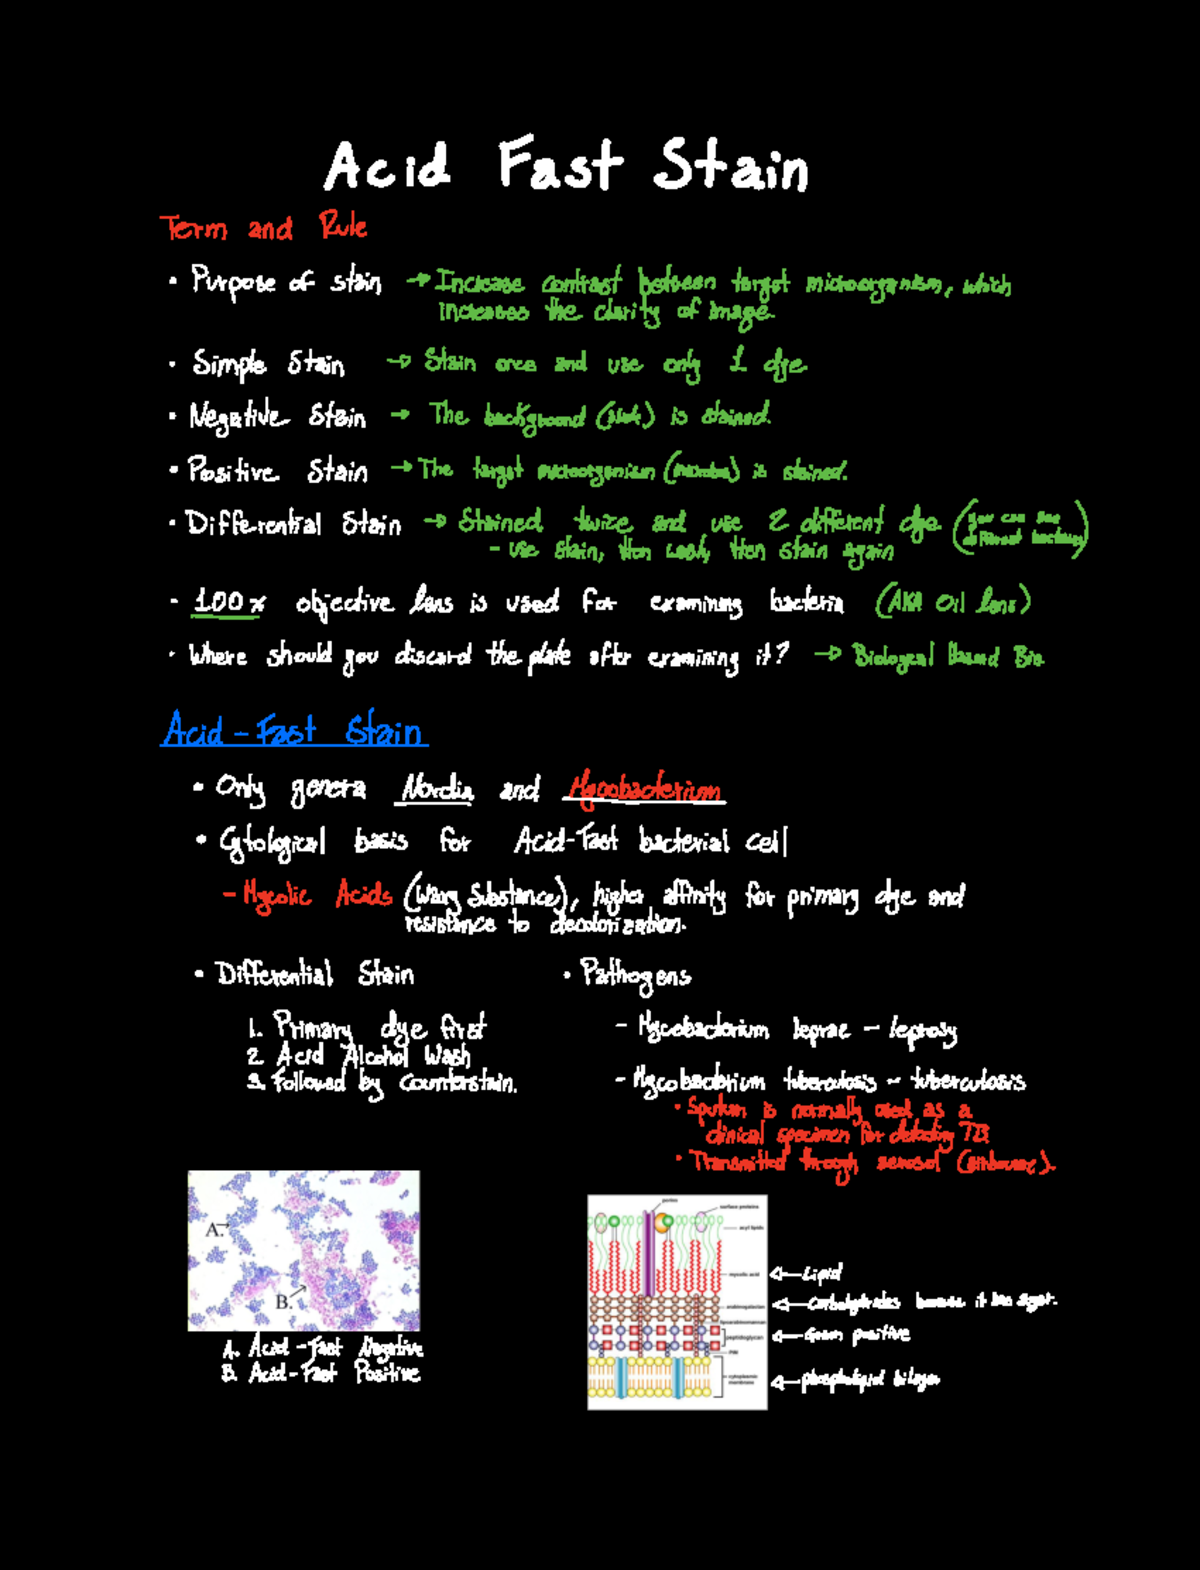 Acid Fast Stain
Term and Rule
• Purpose of stain → Increase contrast between target microorganism, which
increases the clarity of image.
• Simple Stain → Stain once and use only 1 dye
• Negative Stain → The background (slide) is stained.
• Positive Stain → The target microorganism (microbes) is stained.
• Differential Stain → Stained twice and use 2 different dye (you can see
different bacteria)
- use stain, then wash, then stain again
• 100x objective lens is used for examining bacteria (AKA Oil lens)
• Where should you discard the plate after examining it? → Biological Hazard Bin
Acid-Fast Stain
• Only genera Nocardia and Mycobacterium
• Cytological basis for Acid-Fast bacterial cell
- Mycolic Acids (Waxy Substance), higher affinity for primary dye and
resistance to decolorization.
• Differential Stain
1. Primary dye first
2. Acid Alcohol Wash
3. Followed by Counterstain.
• Pathogens
- Mycobacterium leprae - leprosy
- Mycobacterium tuberculosis - tuberculosis
• Sputum is normally used as a
clinical specimen for detecting TB
• Transmitted through aerosol (airborne).
A.
B.
A. Acid-Fast Negative
B. Acid-Fast Positive
porins
surface proteins
acyl lipids
mycolic acid
arabinogalactan
lipoarabinomannan
peptidoglycan
PIM
cytoplasmic
membrane
Lipid
Carbohydrates because it has sugar.
Gram positive
phospholipid bilayer